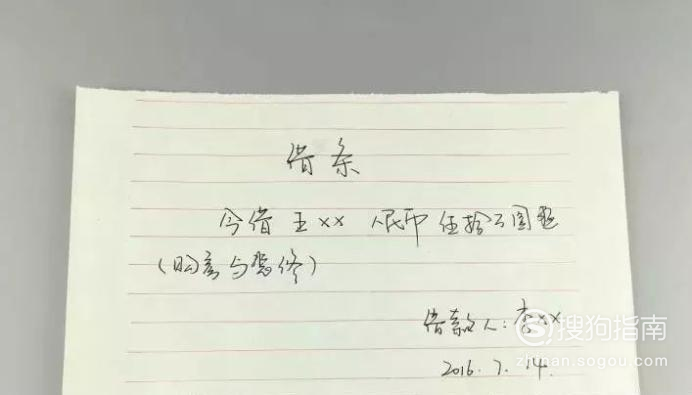 借条
今借王xx 人民币伍拾万圆整
(购房与装修)
借款人:李xx
2016.7.14.
搜狗指南
zhinan.sogou.com